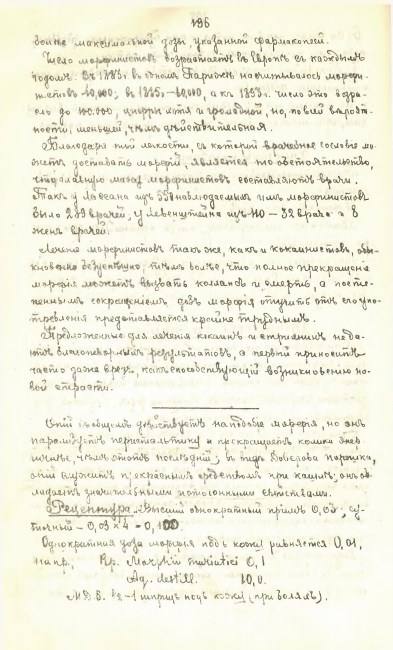 186
болѣе максимальной дозы, указанной фармакопеей.
Число морфинистовъ возрастаетъ въ Европѣ съ каждымъ
годомъ. Въ 1883 г. въ одномъ Парижѣ насчитывалось морфи-
нистовъ 40,000; въ 1885 г. - 60,000, а къ 1893 г. число это возра-
сло до 100.000, цифры хотя и громадной, но, по всей вѣроят-
ности, меньшей, чѣмъ дѣйствительная.
Благодаря той легкости, съ которой врачебное сословіе мо-
жетъ доставать морфій, является то обстоятельство,
что главную массу морфинистовъ составляютъ врачи.
Такъ у изъ наблюдаемыхъ имъ морфинистовъ
было 289 врачей, у Левенштейна изъ 110 - 32 врача и 8
женъ врачей.
Леченіе морфинистовъ также, какъ и кокаинистовъ, обы-
кновенно безуспѣшно, тѣмъ болѣе, что полное прекращеніе
морфія можетъ вызвать коллапсъ и смерть, а посте-
пеннымъ сокращеніемъ дозъ морфія отучить отъ его упо-
требленія представляется крайне труднымъ.
Предложенные для леченія кокаинъ и стрихнинъ не да-
ютъ благотворныхъ результатовъ, а первый приноситъ
часто даже вредъ, какъ способствующій возникновенію но-
вой страсти.
Опій въ общемъ дѣйствуетъ наподобіе морфія, но онъ
парализуетъ перистальтику и прекращаетъ колики энер-
гичнѣе, чѣмъ этотъ послѣдній; въ видѣ Доверова порошка,
опій служитъ прекраснымъ средствомъ при кашлѣ; онъ об-
ладаетъ значительными потогонными свойствами.
Рецептура. Высшій однократный пріемъ 0,03; су-
точный - 0,03 × 4 = 0,100
Однократная доза морфія подъ кожу равняется 0,01,
напр., Rp. Morphii muriatici 0,1
Aq. destill. 10,0.
M.D.S. ½-1 шприцъ подъ кожу (при боляхъ).